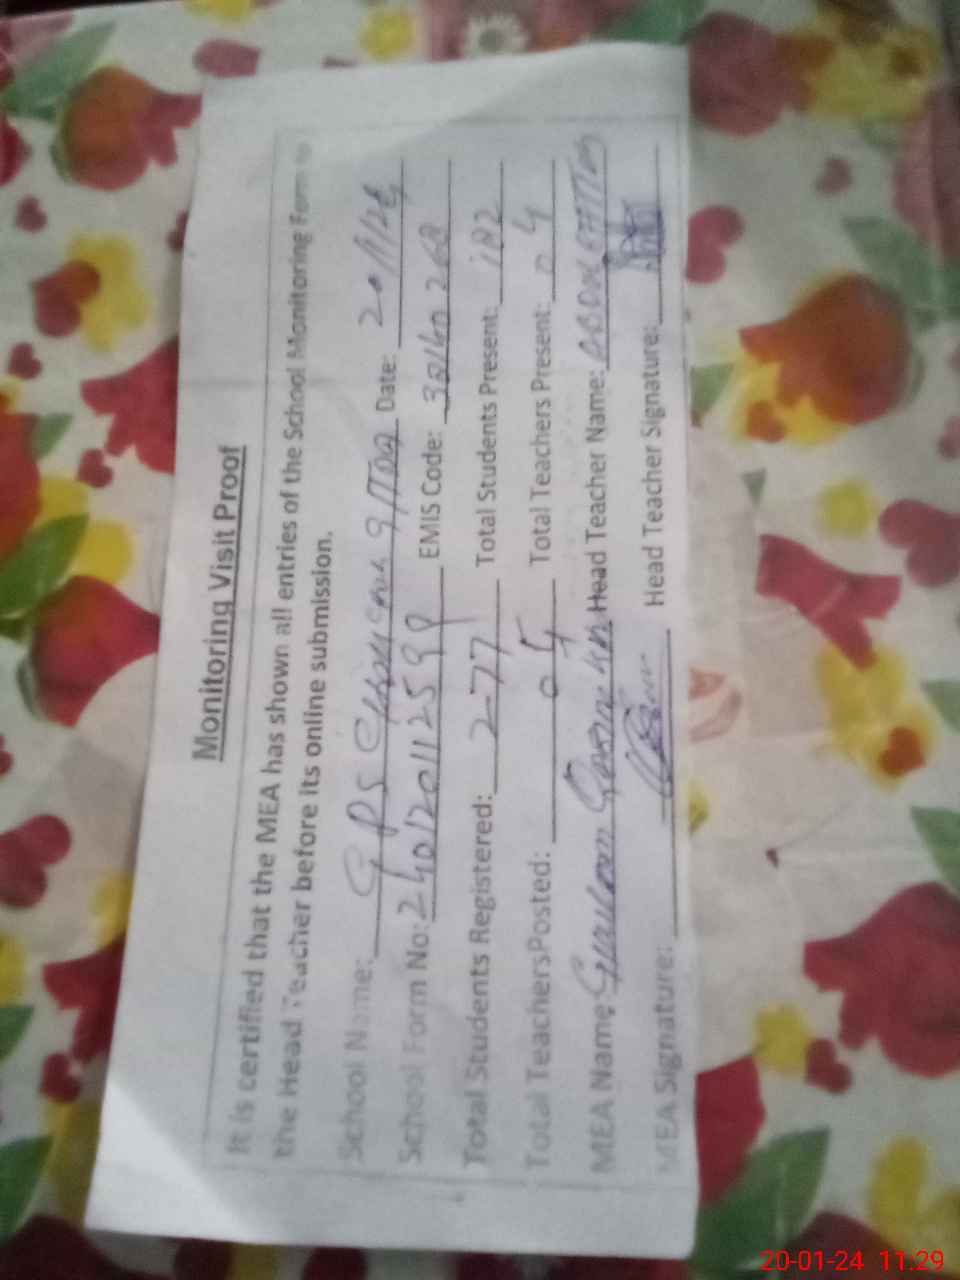 Monitoring Visit Proof
It is certified that the MEA has shown all entries of the School Monitoring Form to
the Head Teacher before its online submission.
School Name: GPS Date: 20/1/24
School Form No: 24012011259 EMIS Code:
Total Students Registered: 277 Total Students Present: 182
Total TeachersPosted: 05 Total Teachers Present: 04
MEA Name: Head Teacher Name: ABDUL
MEA Signature: Head Teacher Signature:
20-01-24 11:29